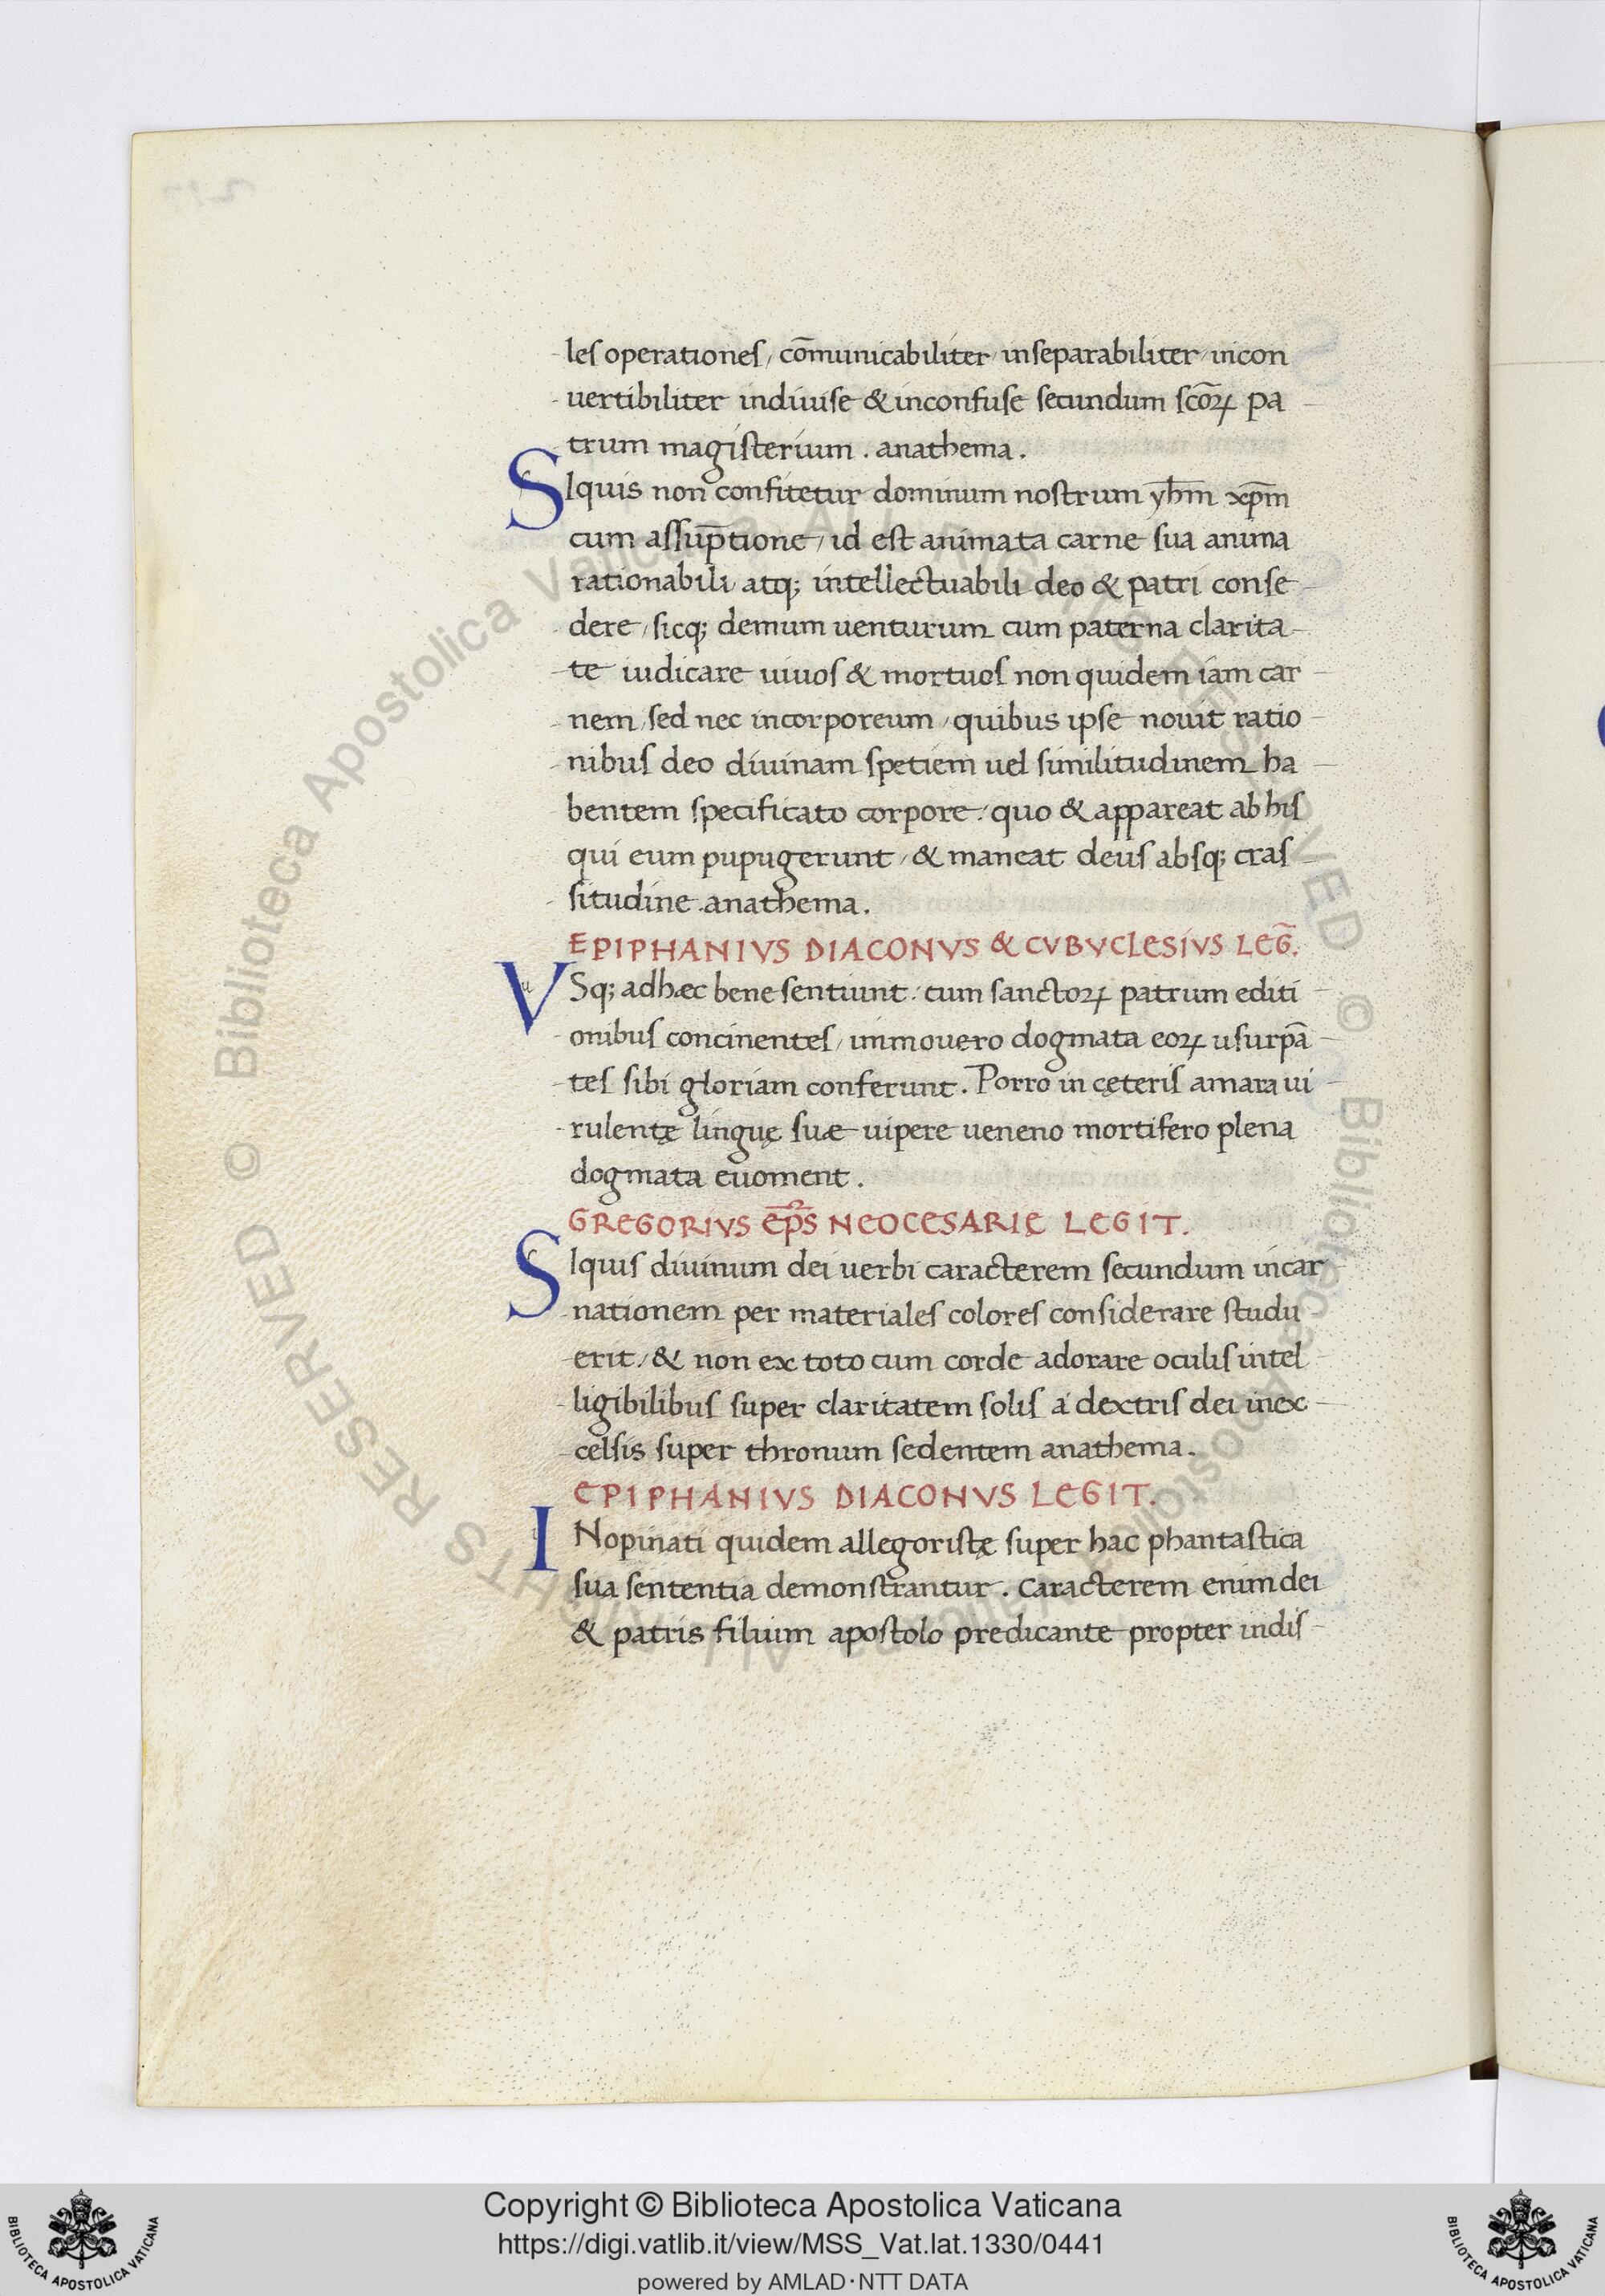 les operationes, cōmunicabiliter, inseparabiliter, incon
uertibiliter indiuise & inconfuse secundum scōꝝ pa
trum magisterium . anathema .
SIquis non confitetur dominum nostrum yh̄m xp̄m
cum assup̄tione, id est animata carne sua anima
rationabili, atq; intellectuabili deo & patri conse
dere, sicq; demum uenturum cum paterna clarita
te iudicare uiuos & mortuos non quidem iam car
nem, sed nec incorporeum, quibus ipse nouit ratio
nibus deo diuinam spetiem uel similitudinem ha
bentem specificato corpore: quo & appareat ab his
qui eum pupugerunt, & maneat deus absq; cras
situdine . anathema .
EPIPHANIVS DIACONVS & CVBVCLESIVS LEḠ.
VSq; adhæc bene sentiunt: cum sanctoꝝ patrum editi
onibus concinentes, immouero dogmata eoꝝ usurpā
tes sibi gloriam conferunt. Porro in cęteris amara ui
rulentę linguę suæ uipere ueneno mortifero plena
dogmata euoment .
GREGORIVS EP̄S NEOCESARIĘ LEGIT.
SIquis diuinum dei uerbi caracterem secundum incar
nationem per materiales colores considerare studu
erit: & non ex toto cum corde adorare oculis intel
ligibilibus super claritatem solis a dextris dei inex
celsis super thronum sedentem anathema .
EPIPHANIVS DIACONVS LEGIT.
INopinati quidem allegoristę super hac phantastica
sua sententia demonstrantur . Caracterem enim dei
& patris filium apostolo predicante propter indis
© Biblioteca Apostolica Vaticana ALL RIGHTS RESERVED
Copyright © Biblioteca Apostolica Vaticana
https://digi.vatlib.it/view/MSS_Vat.lat.1330/0441
powered by AMLAD·NTT DATA
BIBLIOTECA APOSTOLICA VATICANA
BIBLIOTECA APOSTOLICA VATICANA